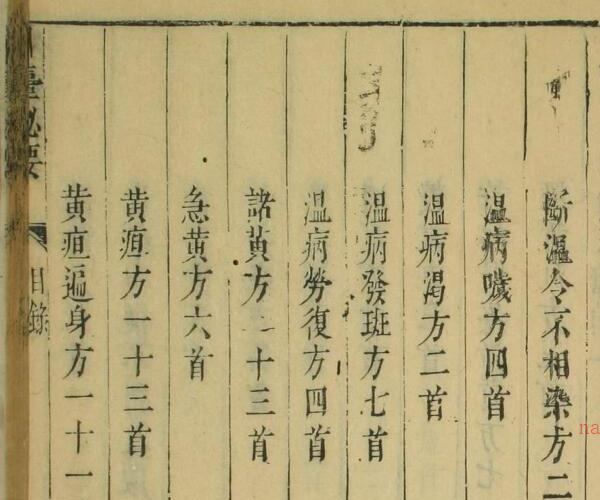 断温令不相染方二
温病噦方四首
温病渴方二首
温病發斑方七首
温病勞復方四首
諸黄方十三首
急黄方六首
黄疸方一十三首
黄疸遍身方一十一
臺秘要
目錄
na